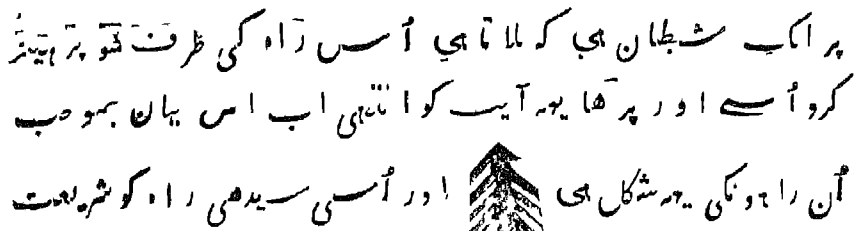 پر ایک شیطان هی که بلاتا هی اُس راه کی طرف تو پرهیز
کرو اُسے اور پڑها یهه آیت کو انتهی اب اس بیان بموجب
اُن راهونکی یهه شکل هی اور اُسی سیدهی راه کو شریعت